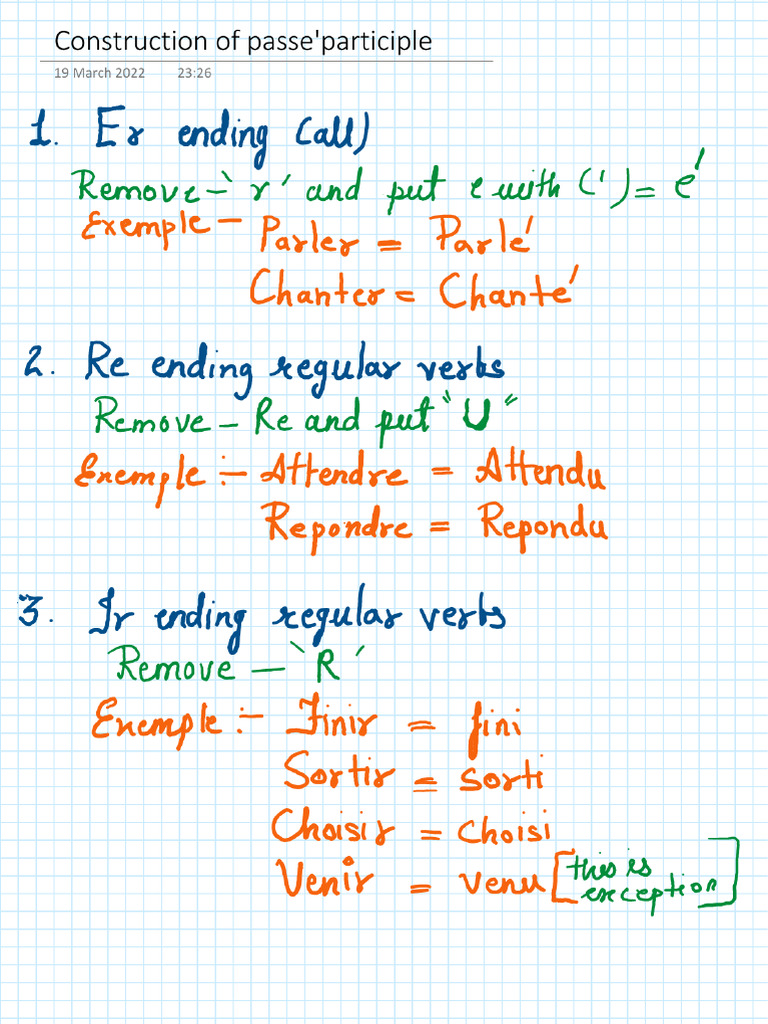 Construction of passe'participle
19 March 2022 23:26
1. Er ending (all)
Remove – 'r' and put e with (') = é
Exemple – Parler = Parlé
Chanter = Chanté
2. Re ending regular verbs
Remove – Re and put "U"
Exemple :- Attendre = Attendu
Repondre = Repondu
3. Ir ending regular verbs
Remove – 'R'
Exemple :- Finir = fini
Sortir = Sorti
Choisir = Choisi
Venir = Venu [this is
exception]